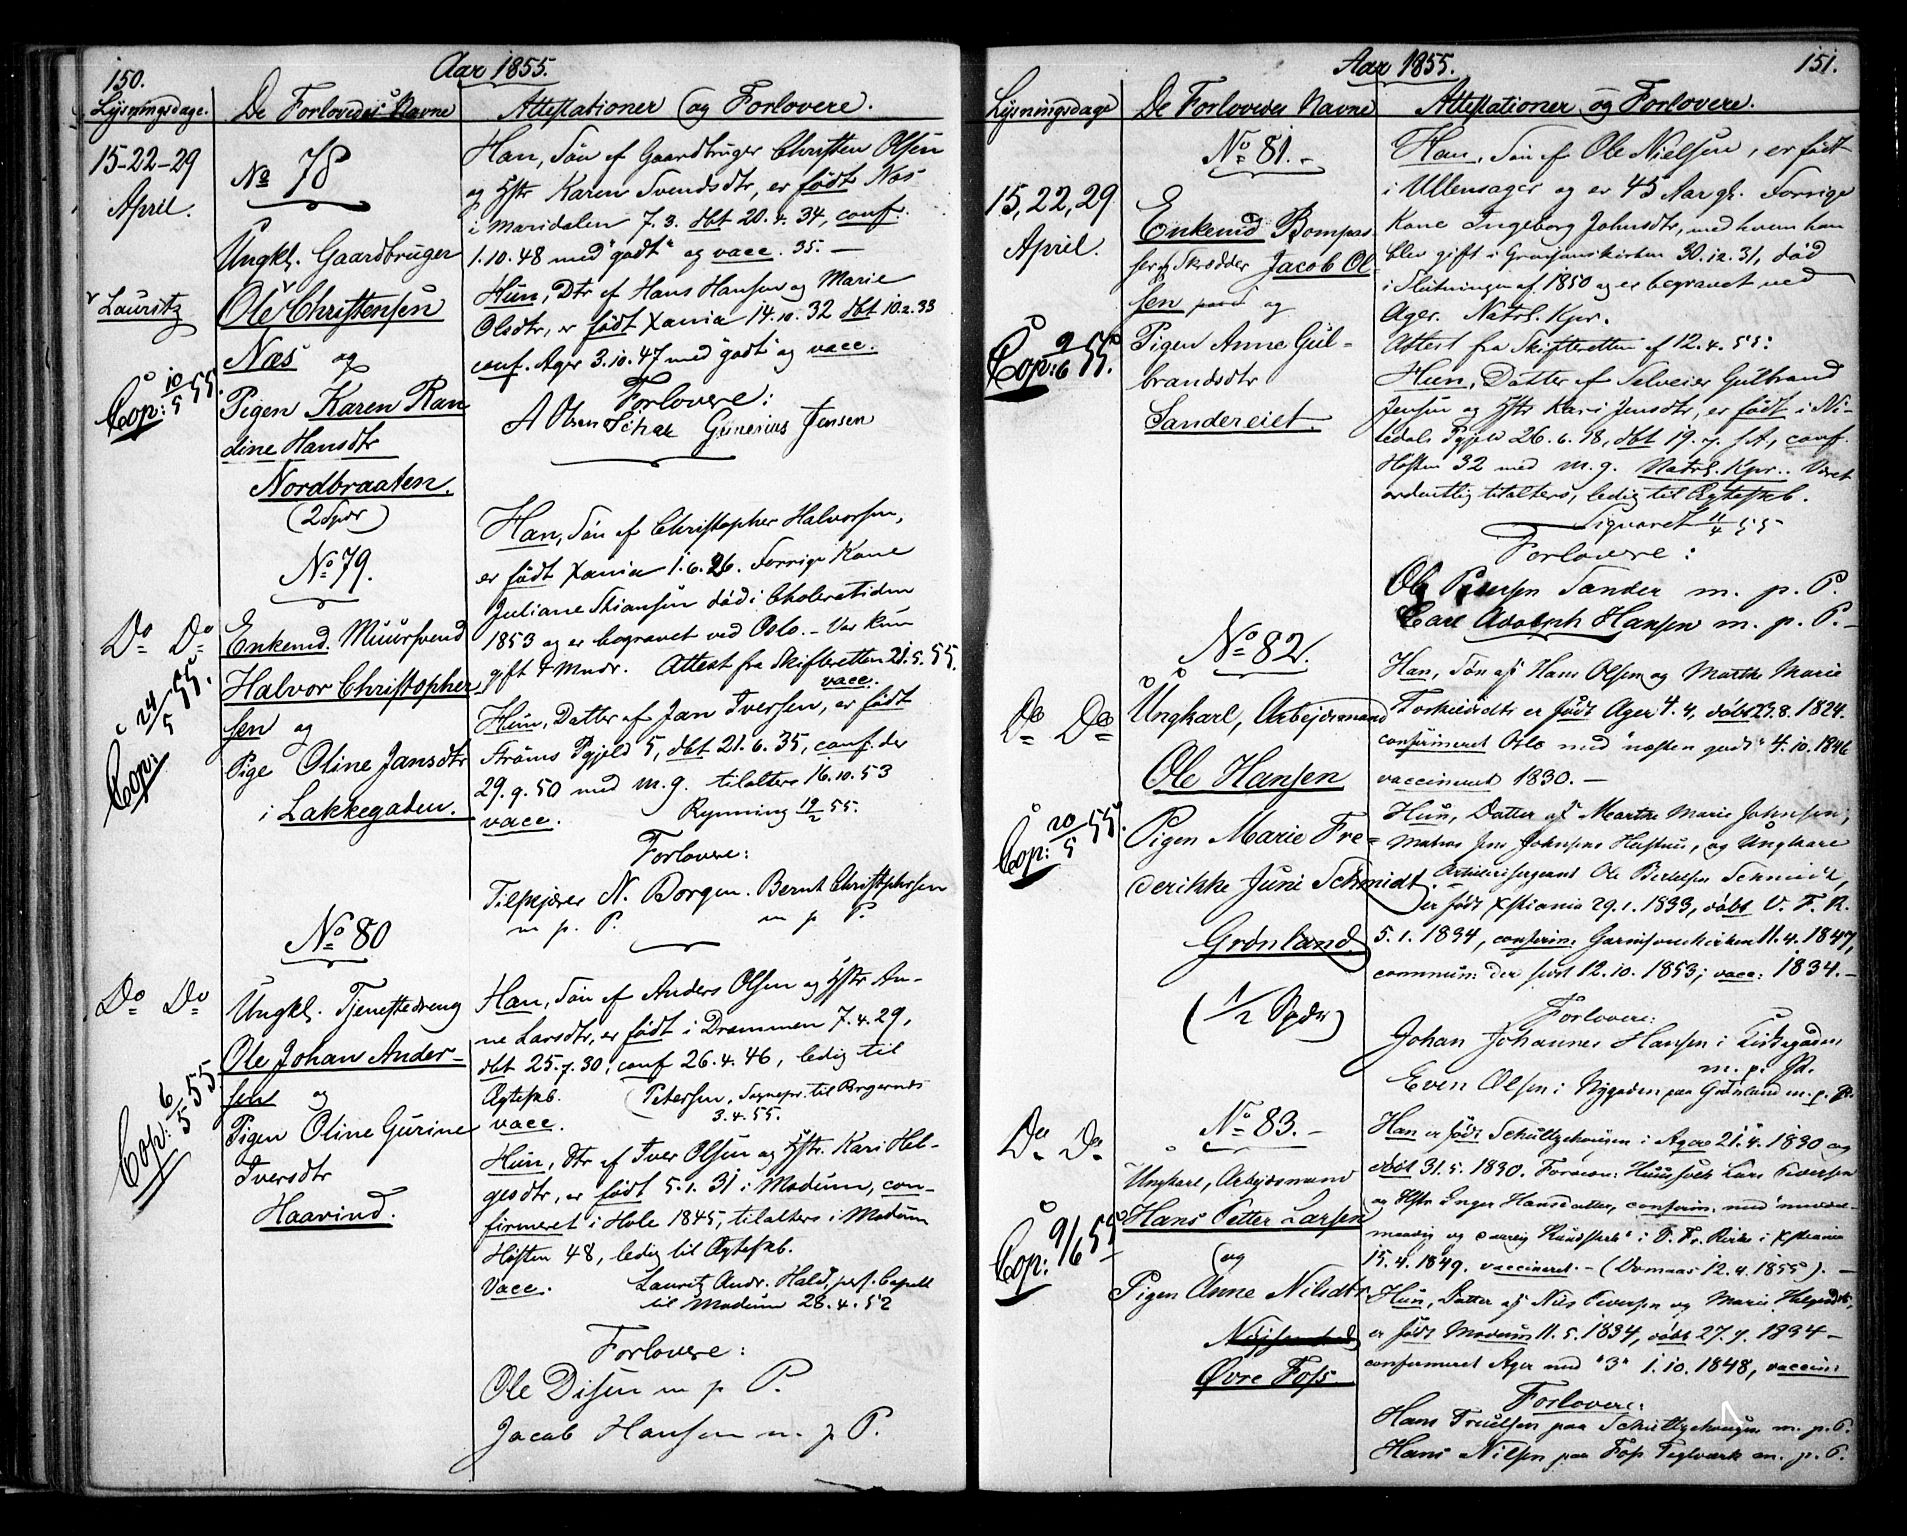 150.
Aar 1855.
Lysningsdage.
De Forlovedes Navne
Attestationer og Forlovere.
15-22-29
April.
Lauritz
Cop: 10/5 55.
No 78
Ungkl. Gaardbruger
Ole Christensen
Næs og
Pigen Karen Ran
dine Hansdtr
Nordbraaten.
(2 Spdr)
Han, Søn af Gaardbruger Christen Olsen
og Hstr Karen Svendsdtr, er født Næs
i Maridalen 7.3. dbt 20.4.34, conf.
1.10.48 med "godt" og vacc. 35. —
Hun, Dtr af Hans Hansen og Marie
Olsdtr, er født Xania 14.10.32 dbt 10.2.33
conf. Ager 3.10.47 med "godt" og vacc.
Forlovere:
A Olsen Gunerius Jensen
Do Do
Cop: 24/5 55.
No 79.
Enkemd. Muursvend
Halvor Christopher
sen og
Pige Oline Jansdtr
i Lakkegaden.
Han, Søn af Christopher Halvorsen,
er født Xania 1.6.26. Forrige Kone
Juliane Stiansen død i Choleratiden
1853 og er begravet ved Oslo. — Var kun
gift 4 Mndr. Attest fra Skifteretten 21.5.55.
vacc.
Hun, Datter af Jan Iversen, er født
Strøms Pgjeld 5, dbt 21.6.35, conf. der
29.9.50 med m.g. tilalters 16.10.53
vacc. Rynning 19/2 55.
Forlovere:
N. Borgen. Bernt Christophersen
m. p. P. m p P.
Do Do
Cop: 6/5 55
No 80
Ungkl. Tjenestedreng
Ole Johan Ander-
sen og
Pigen Oline Gurine
Iversdtr
Haavind.
Han, Søn af Anders Olsen og Hstr An-
ne Larsdtr, er født i Drammen 7.4.29,
dbt 25.7.30, conf 26.4.46, ledig til
Ægteskb. Petersen, Sognepr. til Bragernæs
vacc. 3.4.55.
Hun, Dtr af Iver Olsen og Hstr. Kari Hel-
gesdtr, er født 5.1.31 i Modum, con-
firmeret i Hole 1845, tilalters i Modum
Høsten 48, ledig til Ægteskb.
Vacc. Lauritz Andr. Hald, pers. Capell
til Modum 28.4.52
Forlovere:
Ole Disen m p P.
Jacob Hansen m. p P.
Aar 1855.
151.
Lysningsdage
De Forlovedes Navne
Attestationer og Forlovere.
15, 22, 29
April.
Cop: 9/6 55.
No 81. -
Enkemd Bompas-
ser og Skrædder Jacob Ol-
sen og
Pigen Anne Gul-
brandsdtr
Sandereiet.
Han, Søn af Ole Nielsen, er født
i Ullensager og er 45 Aar gl. Forrige
Kone Ingeborg Johnsdtr, med hvem han
blev gift i Garnisonskirken 30.12.31, død
i Slutningen af 1850 og er begravet ved
Ager. Natrl. Kpr.
Attest fra Skifteretten af 12.4.55.
Hun, Datter af Selveier Gulbrand
Jensen og Hstr Kari Jensdtr, er født i Ni-
tedals Pgjeld 26.6.18, dbt 19.7. s.A., conf.
Høsten 32 med m.g. Natrl. Kpr.. Været
ordentlig tilalters, ledig til Ægteskb.
11/4 55
Forlovere:
Ole Petersen Sander m. p. P.
Carl Adolph Hansen m. p. P. -
Do Do
Cop: 20/5 55.
No 82.
Ungkarl, Arbejdsmand
Ole Hansen
Pigen Marie Fre-
derikke Juni Schmidt.
Grønland
(1/2 Spdr)
Han, Søn af Hans Olsen og Marthe Marie
er født Ager 4.4, døbt 23.8.1824.
confirmeret Oslo med "næsten godt" 4.10.1846
vaccineret 1830. —
Hun, Datter af Marthe Marie Johnsen,
Matros Jens Johnsens Hustru, og Ungkarl
Artillerisergeant Ole Bertelsen Schmidt,
er født Xstiania 29.1.1833, døbt V. F. K.
5.1.1834, conferm. Garnisonskirken 11.4.1847,
commun. der sidst 12.10.1853; vacc. 1834. —
Forlovere:
Johan Johannes Hansen i Kirkegaden
m. p. Pd.
Even Olsen i Nygaden paa Grønland m. p. P.
Do Do
Cop: 9/6 55
No 83. -
Ungkarl, Arbejdsmand
Hans Petter Larsen
og
Pigen Anne Nilsdtr
Øvre Foss.
Han er født Schultzehougen i Ager 21.4.1830 og
døbt 31.5.1830. Huusfolk Lars Pedersen
og Hstr Inger Hansdatter, conferm. med "maadel-
maadig og daarlig Kundskab" i V. Fr. Kirke i Xstiania
15.4.1849, vaccineret. — (Domaas 12.4.1855). —
Hun, Datter af Nils Iversen og Marie Helgesdtr,
er født Modum 11.5.1834, døbt 27.7.1834 —
confermeret Ager med "3" 1.10.1848, vaccin:
Forlovere:
Hans Truelsen paa Schultzehougen m. p. P.
Hans Nilsen paa Fos Teglværk m. p. P.